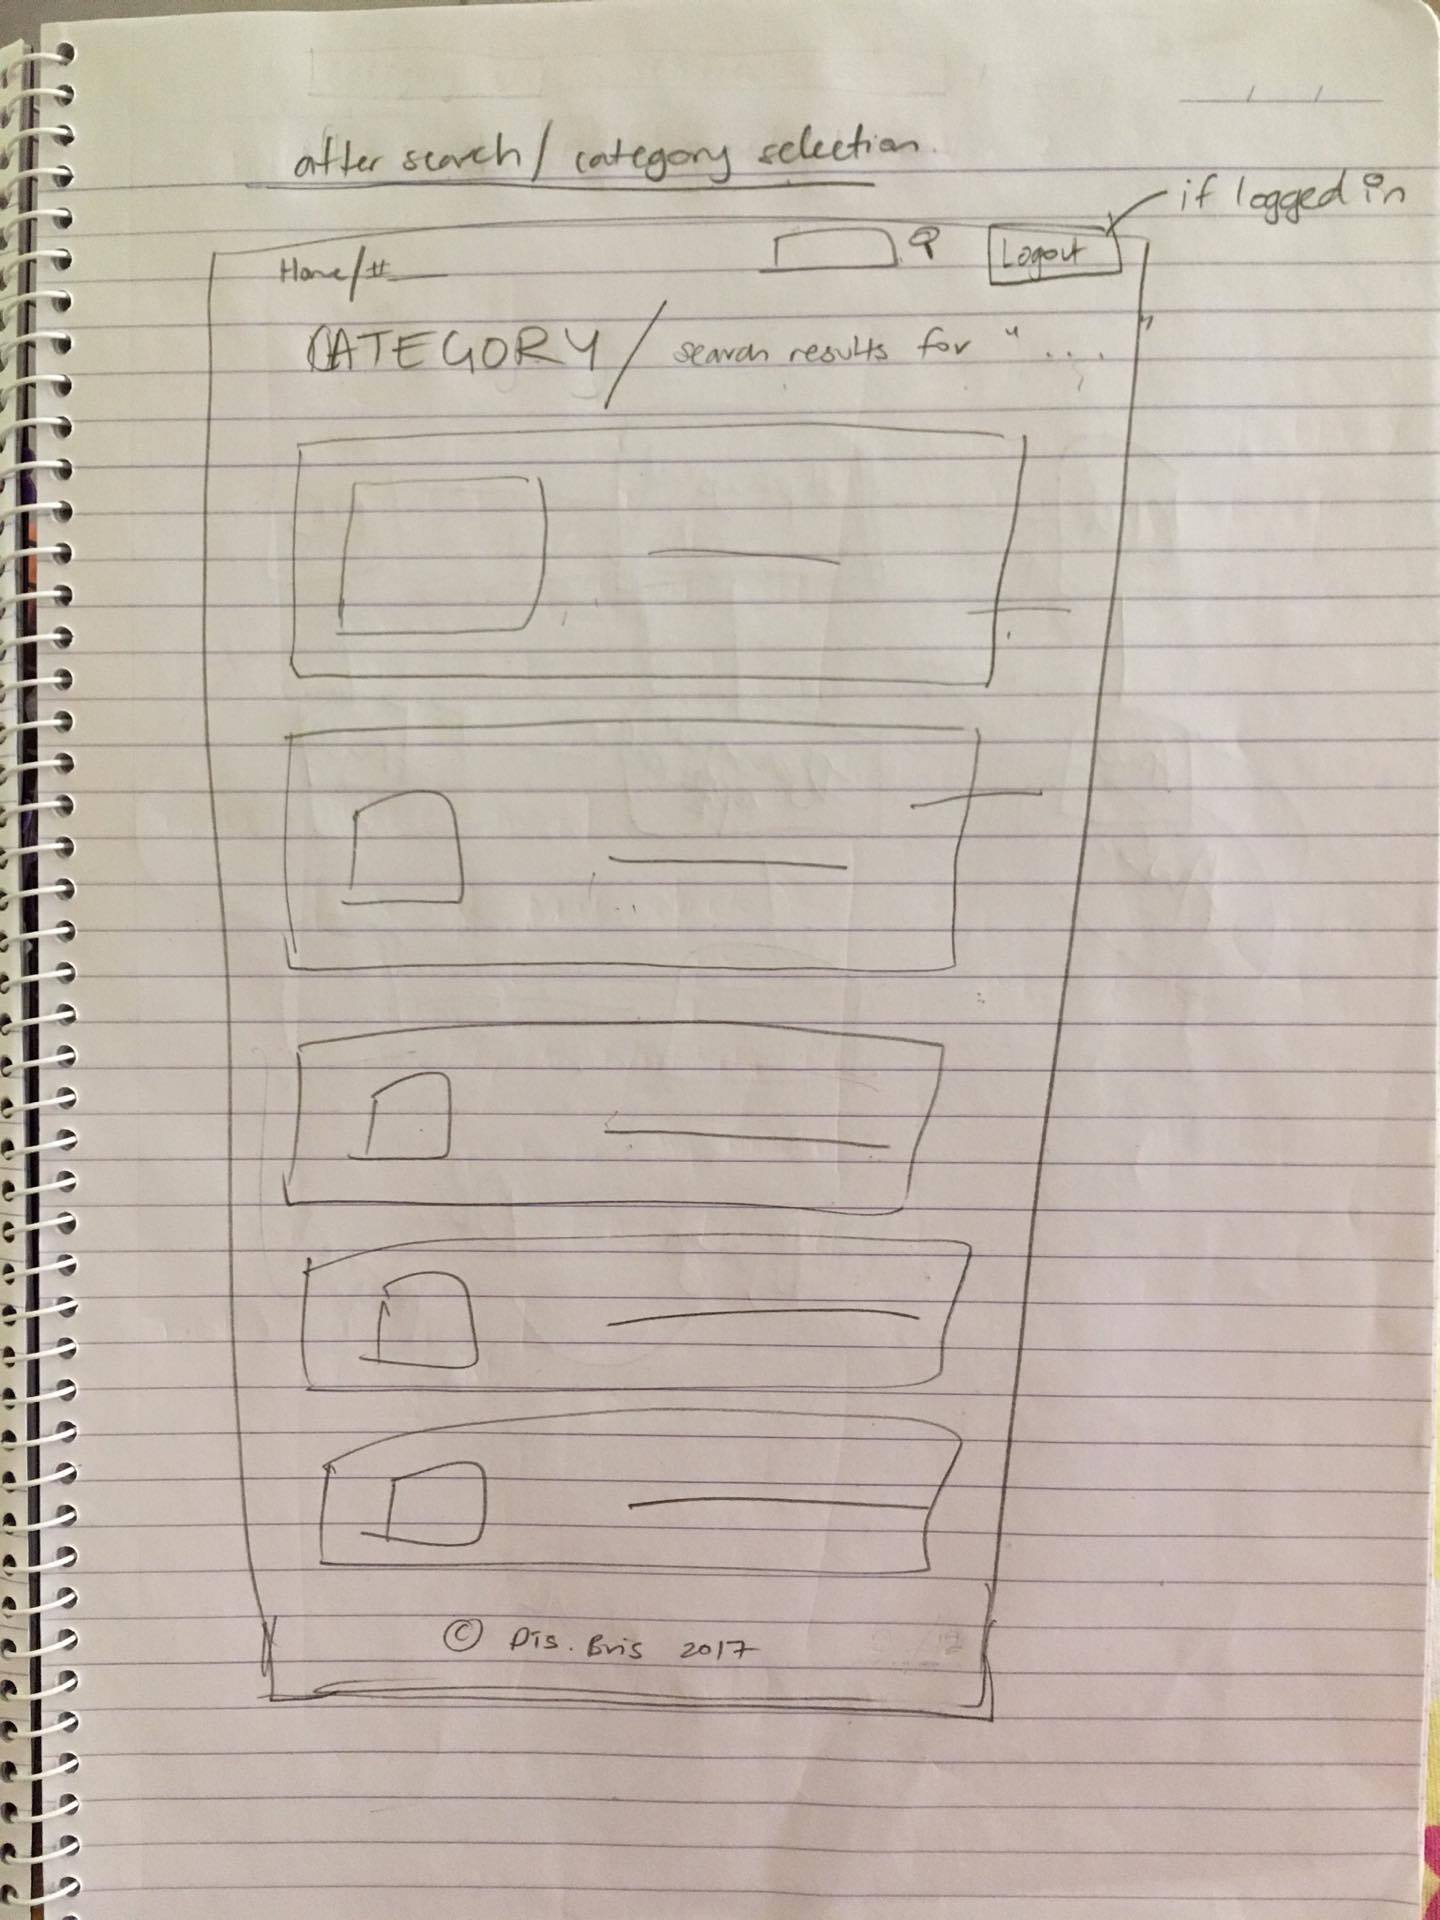 after search / category selection.
if logged in
Home/#
Logout
CATEGORY / search results for "..."
© Dis. Bris 2017